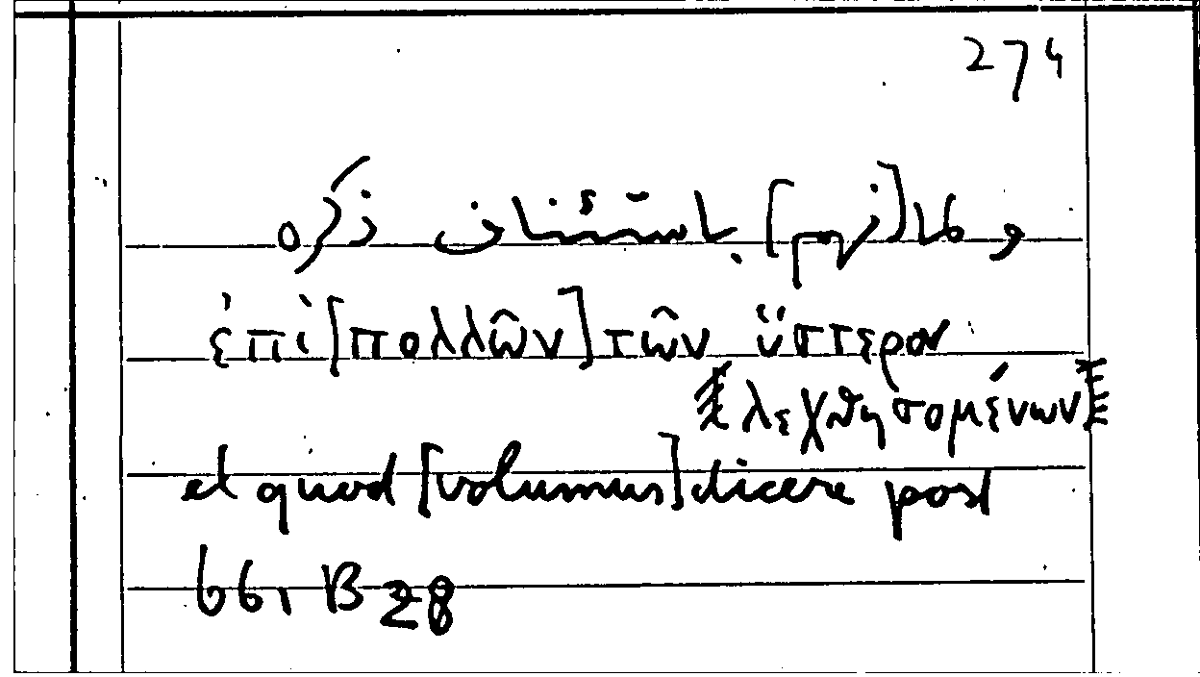 274
و ما [نهم] باستئناف ذكره
ἐπὶ [πολλῶν] τῶν ὕστερον
λεχθησομένων
et quod [volumus] dicere post
661 B 28